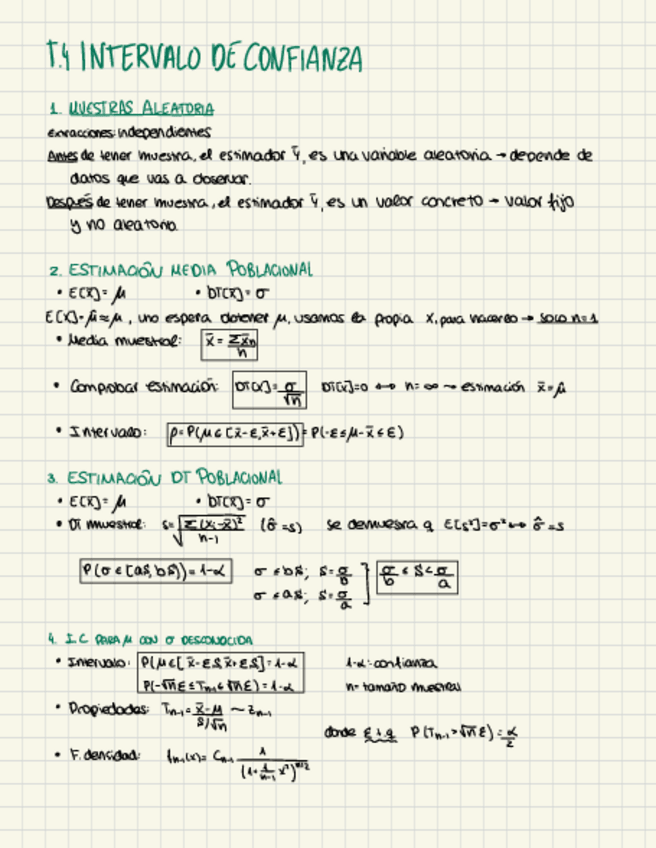 T.4 INTERVALO DE CONFIANZA
1. MUESTRAS ALEATORIA
Extracciones independientes
Antes de tener muestra, el estimador Ȳ, es una variable aleatoria → depende de
datos que vas a observar.
Después de tener muestra, el estimador Ȳ, es un valor concreto → valor fijo
y no aleatorio.
2. ESTIMACIÓN MEDIA POBLACIONAL
• E(X)= μ • DT(X)= σ
E(X)= μ̂ ≈ μ, uno espera obtener μ, usamos la propia X, para hacerlo → solo n=1
• Media muestral: x̄ = Σxn/n
• Comprobar estimación: DT(x̄)= σ/√n DT(x̄)=0 ↔ n=∞ → estimación x̄=μ̂
• Intervalo: p=P(μ∈[x̄-ε,x̄+ε])=P(-ε≤μ-x̄≤ε)
3. ESTIMACIÓN DT POBLACIONAL
• E(X)= μ • DT(X)= σ
• DT muestral: s=√(Σ(xi-x̄)²/n-1) (σ̂=s) se demuestra q E[s²]=σ² ↔ σ̂=s
P(σ∈[as, bs])=1-α σ≤bs; s=σ/b
σ≤as; s=σ/a
σ/b ≤ s ≤ σ/a
4. I.C PARA μ CON σ DESCONOCIDA
• Intervalo: P(μ∈[x̄-εs,x̄+εs]=1-α 1-α: confianza
P(-√nε≤Tn-1≤√nε)=1-α n=tamaño muestral
• Propiedades: Tn-1= x̄-μ/s/√n ~ Zn-1
donde ε t.q P(Tn-1>√nε)=α/2
• F. densidad: fn-1(x)= Cn-1 1/(1+1/n-1 x²)^n/2